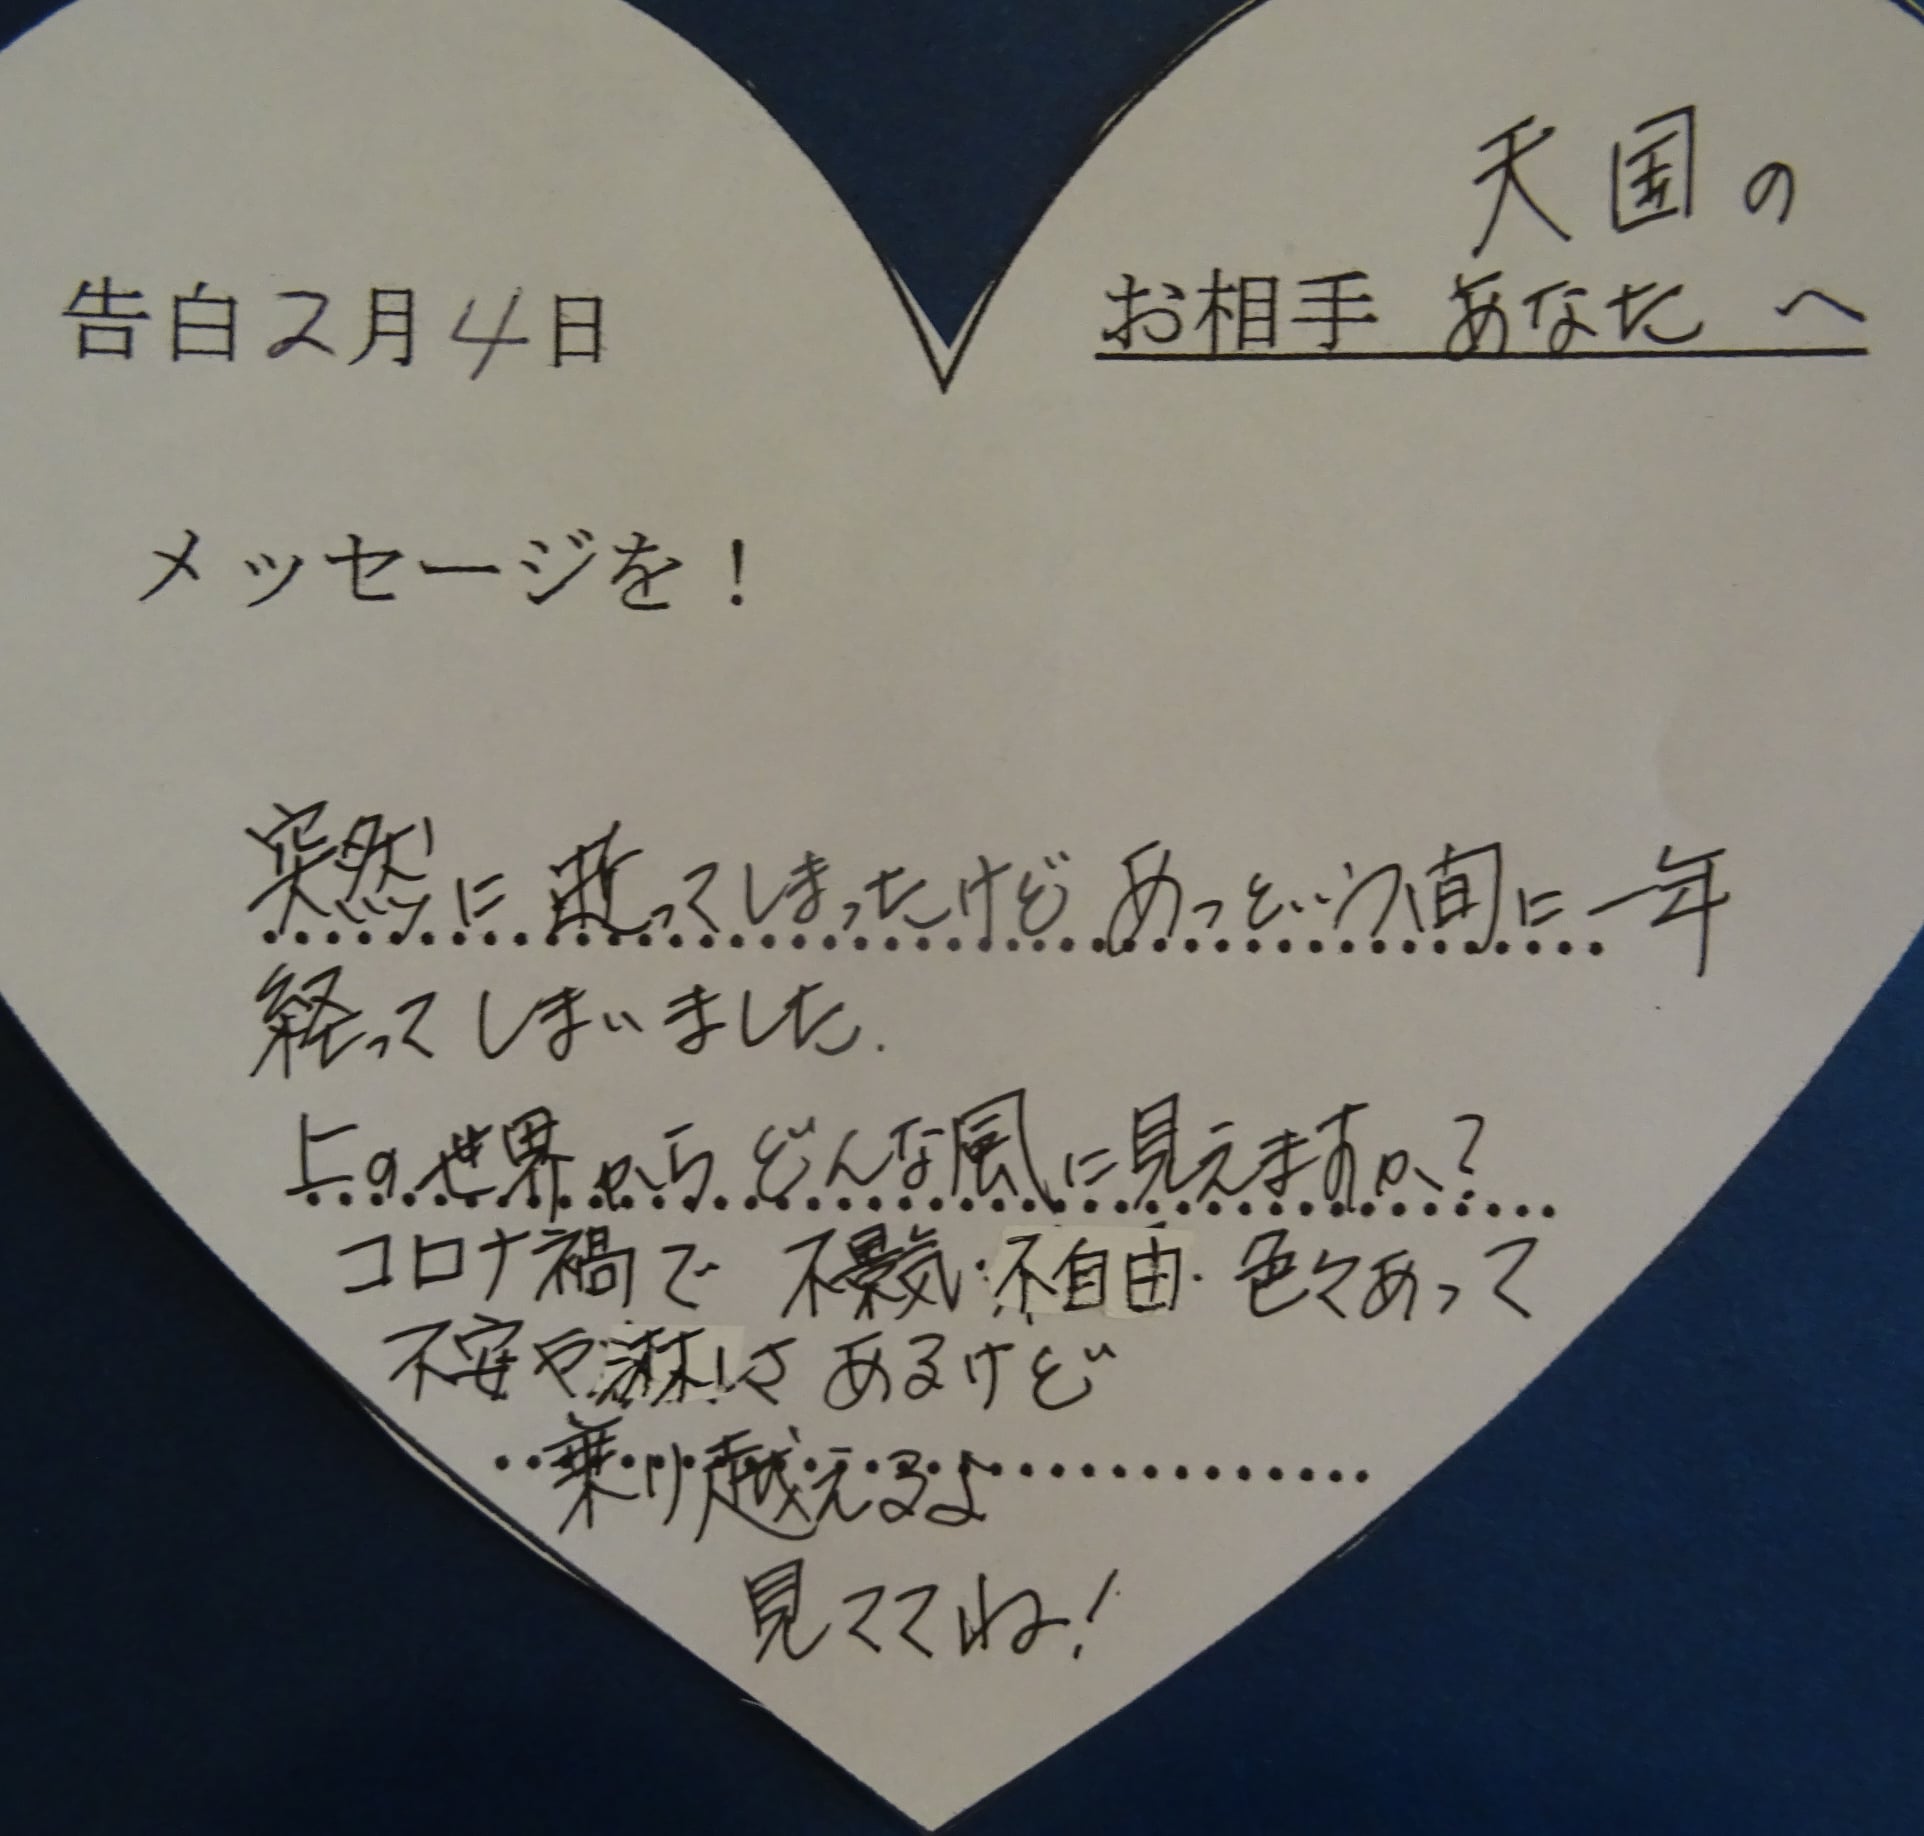 告白2月4日
天国の
お相手 あなた へ
メッセージを！
突然に逝ってしまったけど あっという間に一年
経ってしまいました.
上の世界から どんな風に見えますか?
コロナ禍で 不景気・不自由・色々あって
不安や淋しさ あるけど
乗り越えるよ
見ててね!